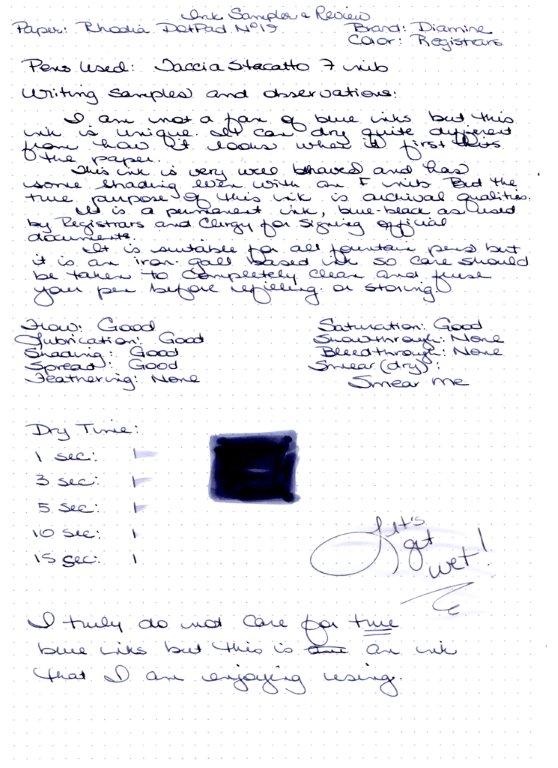 Ink Sample & Review
Paper: Rhodia DotPad Nº19
Brand: Diamine
Color: Registrars
Pens Used: Taccia Stacatto F nib
Writing samples and observations:
I am not a fan of blue inks but this
ink is unique. It can dry quite different
from how it looks when it first hits
the paper.
This ink is very well behaved and has
some shading even with an F nib. But the
true purpose of this ink is archival qualities.
It is a permanent ink, blue-black as used
by Registrars and Clergy for signing official
documents.
It is suitable for all fountain pens but
it is an iron gall based ink so care should
be taken to completely clean and
your pen before refilling or storing
Flow: Good
Lubrication: Good
Shading: Good
Spread: Good
Feathering: None
Saturation: Good
Showthrough: None
Bleedthrough: None
Smear (dry):
Smear me
Dry Time:
1 sec:
3 sec:
5 sec:
10 sec:
15 sec:
Let's
get
wet!
I truly do not care for true
blue inks but this is an ink
that I am enjoying using.